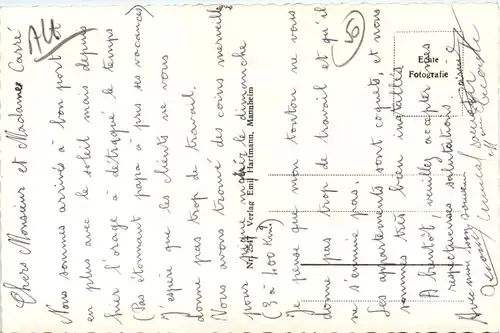 Alt
5
Chers Monsieur et Madame Carré
Nous sommes arrivés à bon port
en plus avec le soleil mais depuis
hier l'orage a détraqué le temps
(Pas étonnant papa a pris ses vacances)
J'espère que les clients ne vous
donne pas trop de travail.
Nous avons trouvé des coins merveille
pour pique niquer le dimanche
(3 à 400 Km)
Je pense que mon tonton ne vous
donne pas trop de travail et qu'il
ne s'ennuie pas.
Les appartements sont coquets, et nous
sommes très bien installés
A bientôt, veuillez accepter mes
respectueuses salutations.
Avec mon bon souvenir
Nr. 2547 Verlag Emil Hartmann, Mannheim
Echte
Fotografie